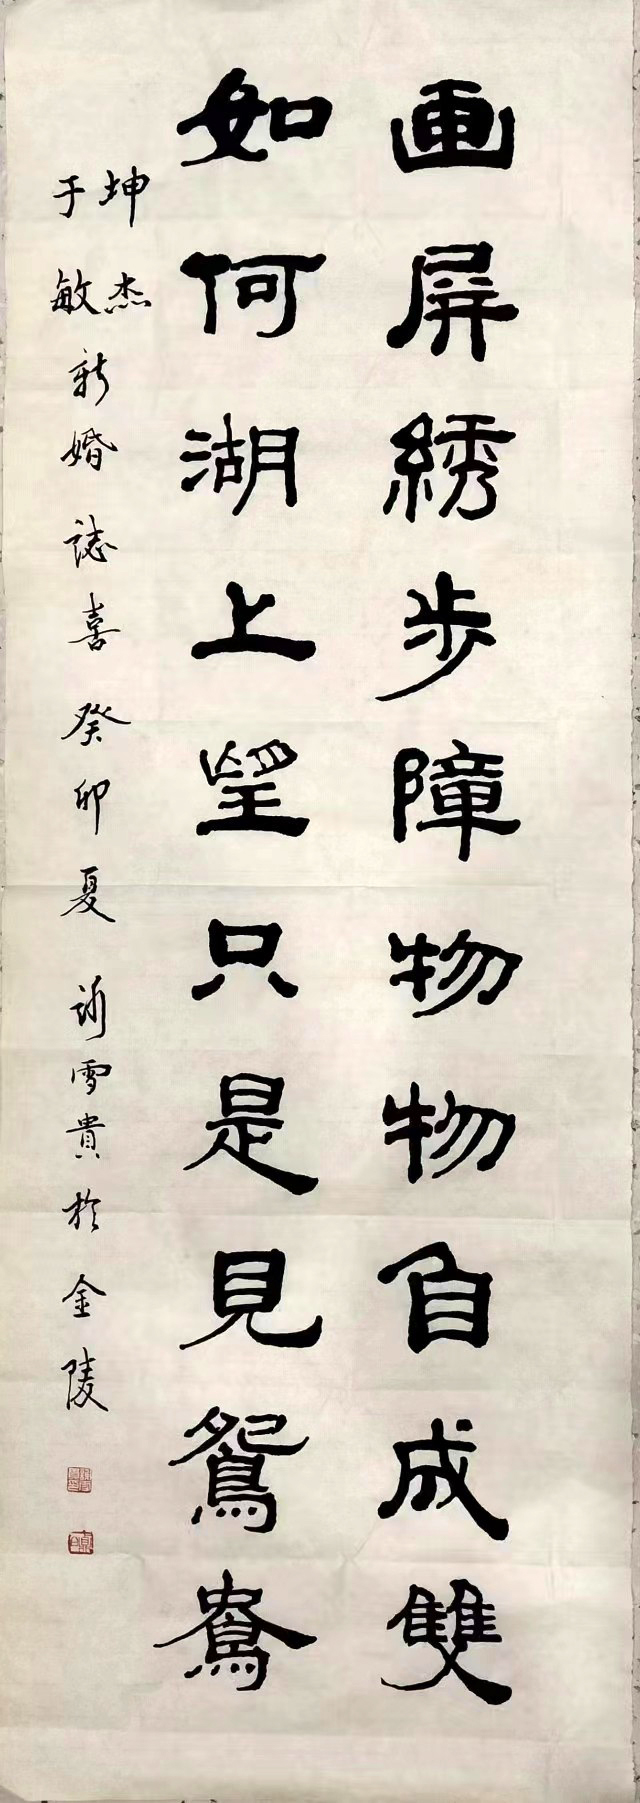 画屏綉步障物物自成雙
如何湖上望只是見鴛鴦
坤杰
于敏
新婚誌喜癸卯夏許雪貴於金陵